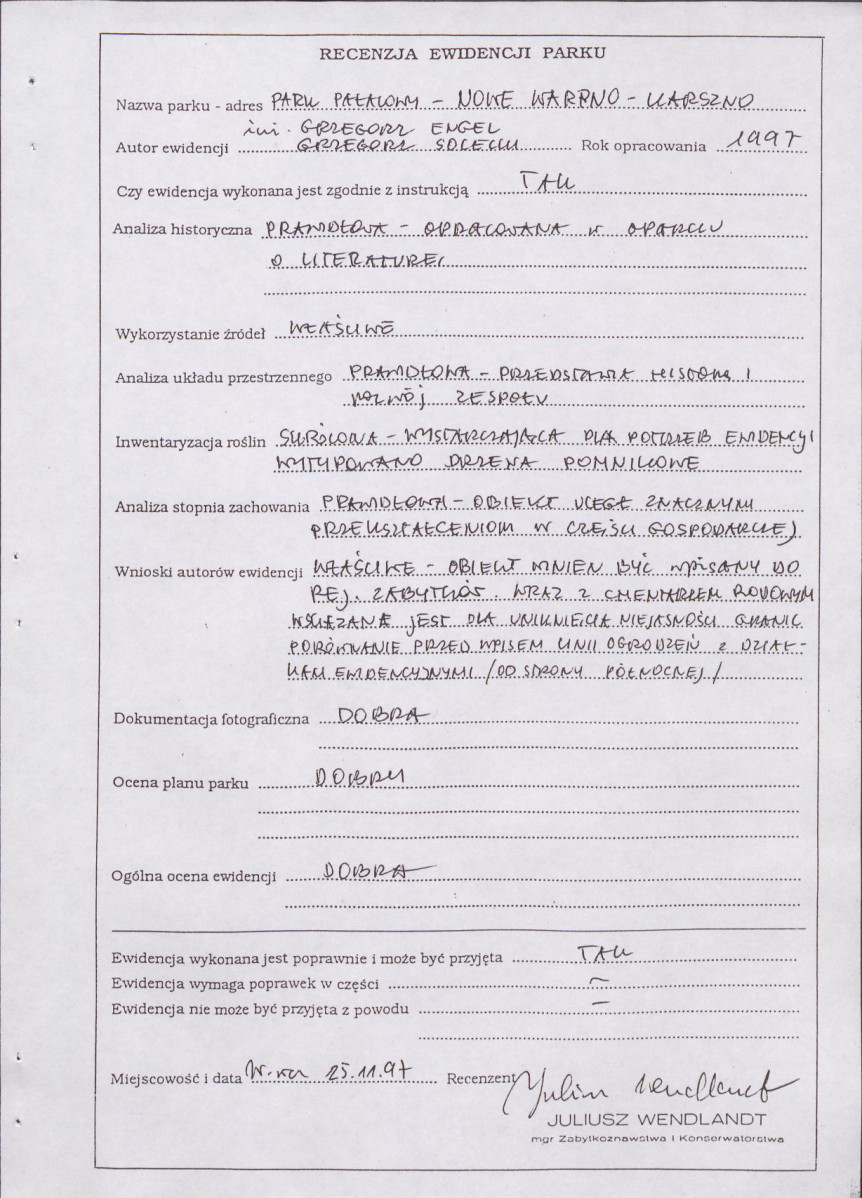 RECENZJA EWIDENCJI PARKU
Nazwa parku - adres PARK PAŁACOWY - NOWE WARPNO - KARSZNO
inż. GRZEGORZ ENGEL
Autor ewidencji GRZEGORZ SOLECKI Rok opracowania 1997
Czy ewidencja wykonana jest zgodnie z instrukcją TAK
Analiza historyczna PRAWIDŁOWA - OPRACOWANA W OPARCIU
O LITERATURĘ
Wykorzystanie źródeł WŁAŚCIWE
Analiza układu przestrzennego PRAWIDŁOWA - PRZEDSTAWIA HISTORIĘ I
ROZWÓJ ZESPOŁU
Inwentaryzacja roślin SKRÓCONA - WYSTARCZAJĄCA DLA POTRZEB EWIDENCJI
WYTYPOWANO DRZEWA POMNIKOWE
Analiza stopnia zachowania PRAWIDŁOWA - OBIEKT ULEGŁ ZNACZNYM
PRZEKSZTAŁCENIOM W CZĘŚCI GOSPODARCZEJ
Wnioski autorów ewidencji WŁAŚCIWE - OBIEKT WINIEN BYĆ WPISANY DO
REJ. ZABYTKÓW. WRAZ Z CMENTARZEM RODOWYM
WSKAZANE JEST DLA UNIKNIĘCIA NIEJASNOŚCI GRANIC
PORÓWNANIE PRZED WPISEM LINII OGRODZEŃ Z DZIAŁ-
KAMI EWIDENCYJNYMI /OD STRONY PÓŁNOCNEJ/
Dokumentacja fotograficzna DOBRA
Ocena planu parku DOBRY
Ogólna ocena ewidencji DOBRA
Ewidencja wykonana jest poprawnie i może być przyjęta TAK
Ewidencja wymaga poprawek w części —
Ewidencja nie może być przyjęta z powodu —
Miejscowość i data 25.11.97 Recenzent Juliusz Wendlandt
JULIUSZ WENDLANDT
mgr Zabytkoznawstwa i Konserwatorstwa